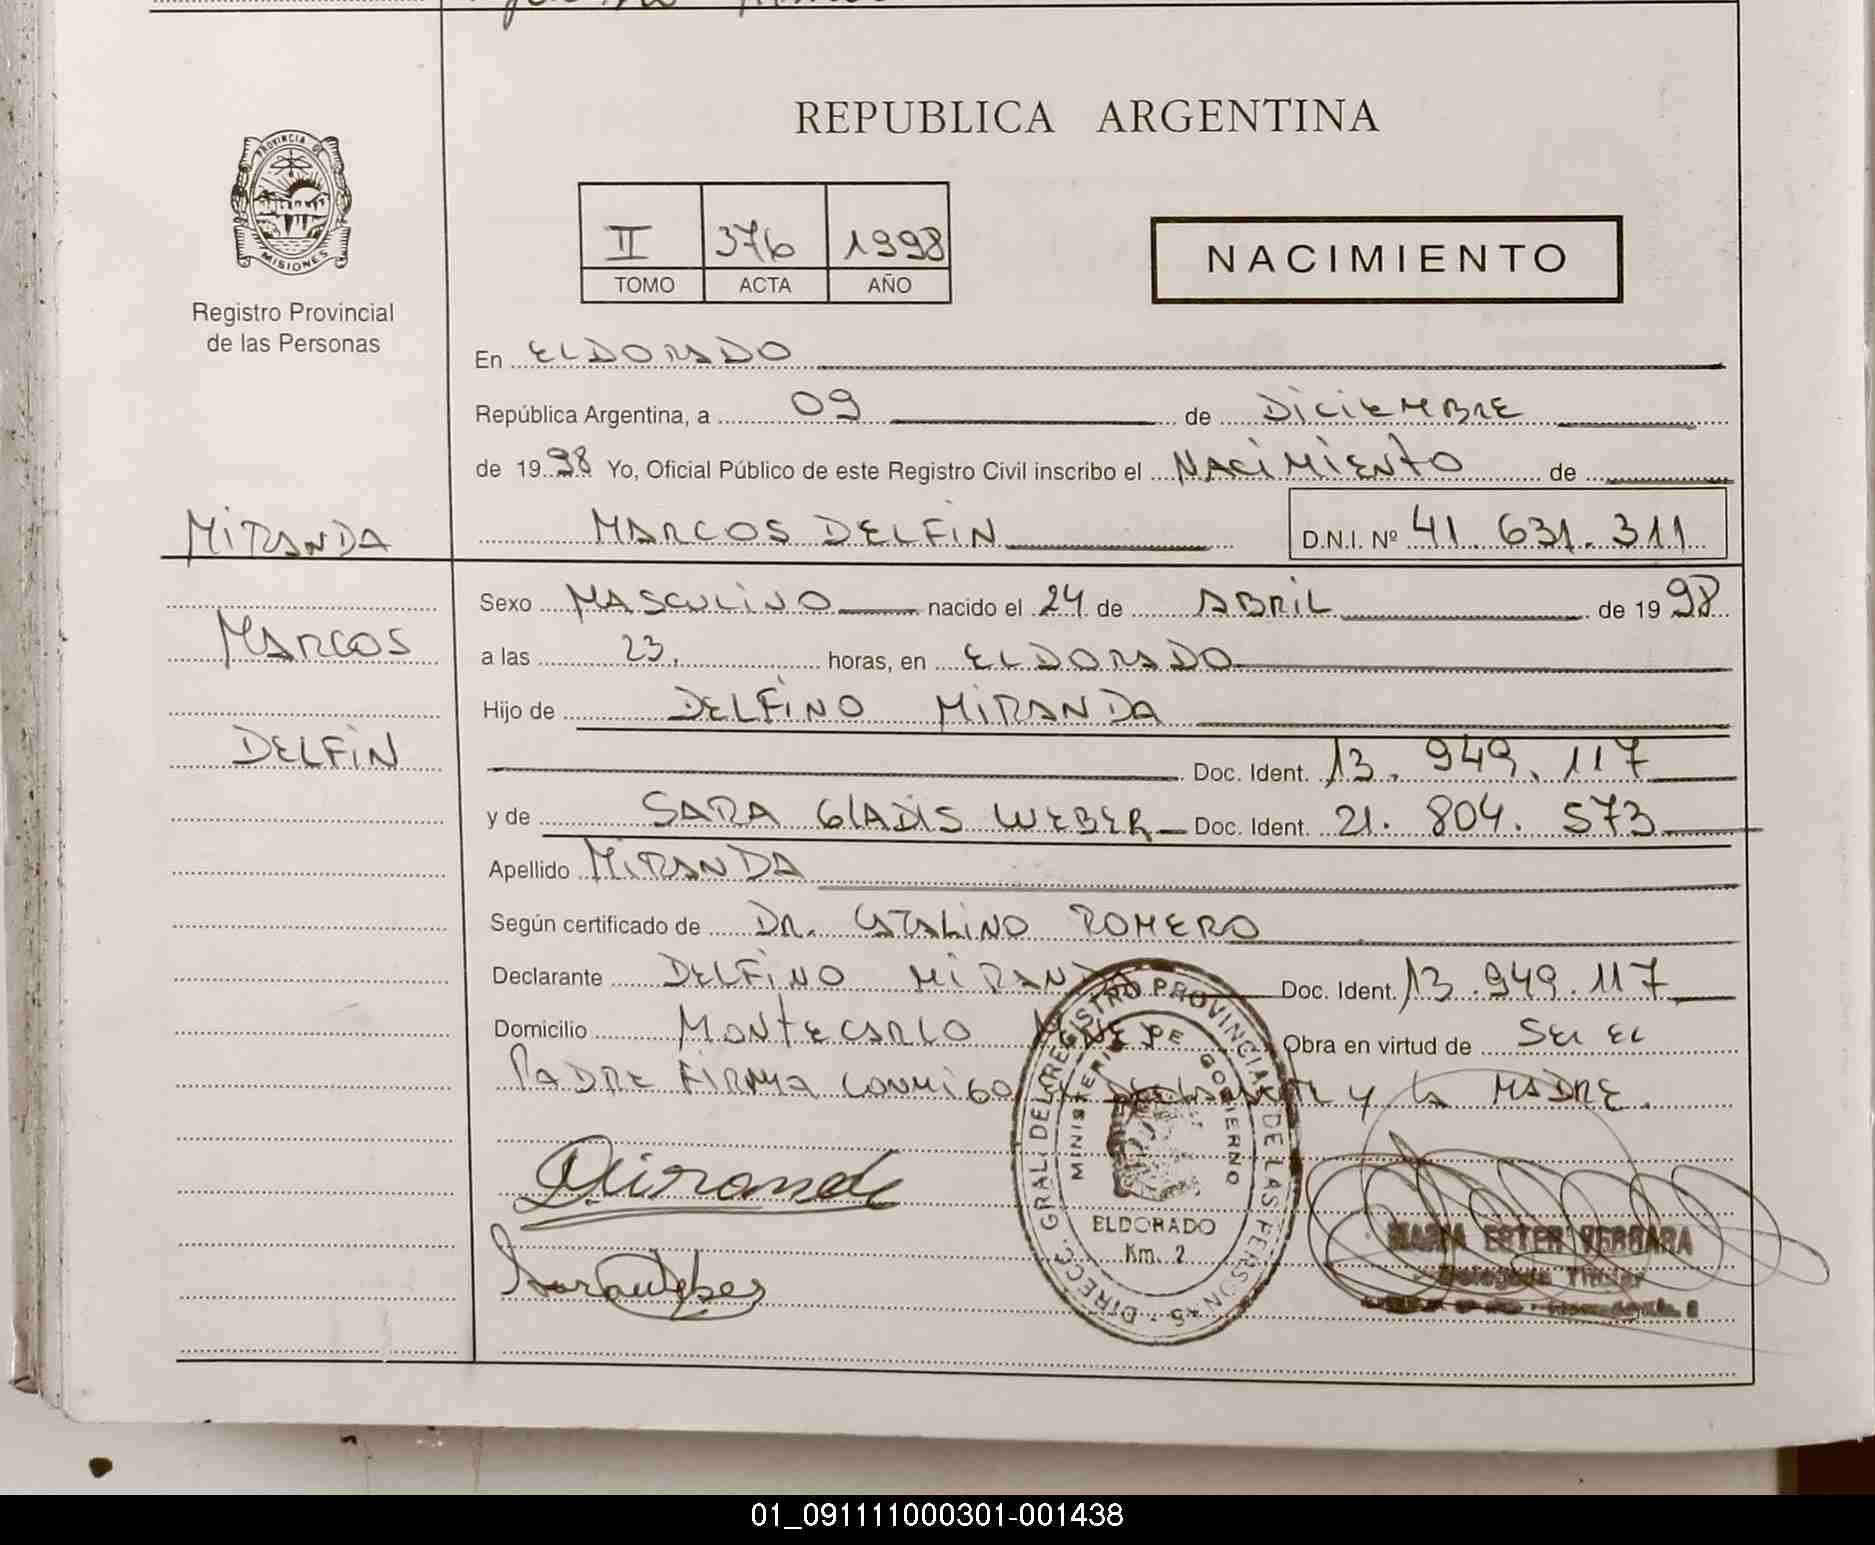 REPUBLICA ARGENTINA
PROVINCIA DE
MISIONES
Registro Provincial
de las Personas
II 376 1998
TOMO ACTA AÑO
NACIMIENTO
En ELDORADO
República Argentina, a 09 de DiciEMBRE
de 1998 Yo, Oficial Público de este Registro Civil inscribo el NACiMiENTO de
MARCOS DELFiN D.N.I. Nº 41.631.311
MiRANDA
MARCOS
DELFiN
Sexo MASCULiNO nacido el 24 de ABRiL de 1998
a las 23. horas, en ELDORADO
Hijo de DELFiNO MiRANDA
Doc. Ident. 13.949.117
y de SARA GlADiS WEBER Doc. Ident. 21.804.573
Apellido MiRANDA
Según certificado de DR. CATALiNO ROMERO
Declarante DELFiNO MiRANDA Doc. Ident. 13.949.117
Domicilio MONTECARLO Obra en virtud de SER EL
PADRE FiRMA CONMiGO EL DECLARANTE y la MADRE.
DIRECC. GRAL. DEL REGISTRO PROVINCIAL DE LAS PERSONAS
MINISTERIO DE GOBIERNO
ELDORADO
Km. 2
DMiranda
Sara Weber
MARIA ESTER VERGARA
Delegada Titular
01_091111000301-001438